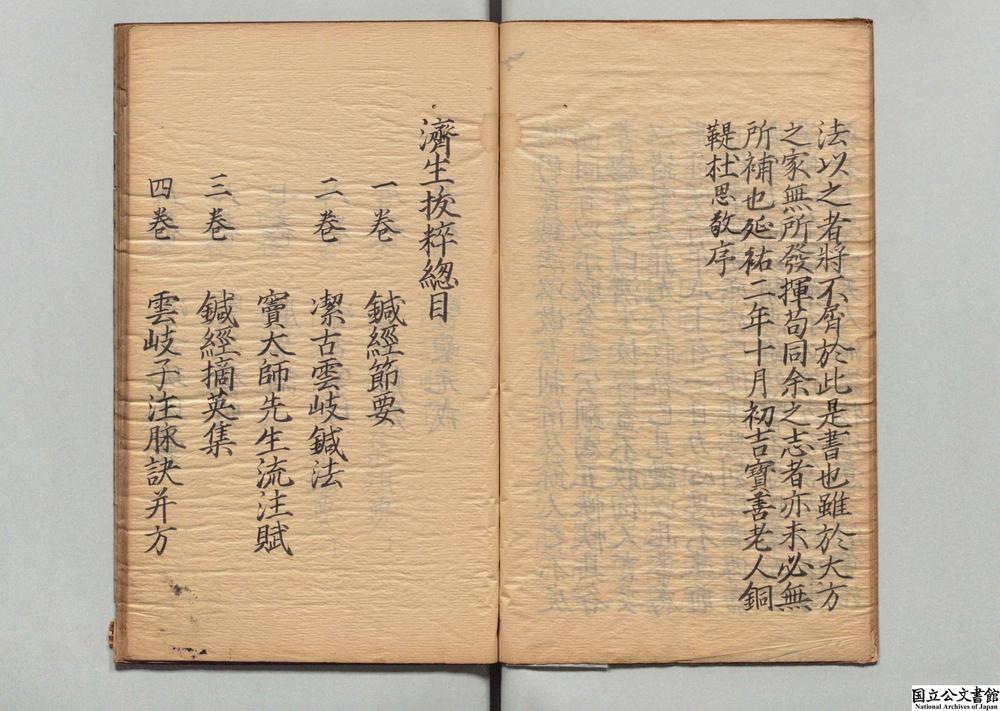 法以之者將不屑於此是書也雖於大方
之家無所發揮苟同余之志者亦未必無
所補也延祐二年十月初吉寶善老人銅
鞮杜思敬序
濟生拔粹總目
一卷 鍼經節要
二卷 潔古雲岐鍼法
竇太師先生流注賦
三卷 鍼經摘英集
四卷 雲岐子注脉訣并方
国立公文書館
National Archives of Japan